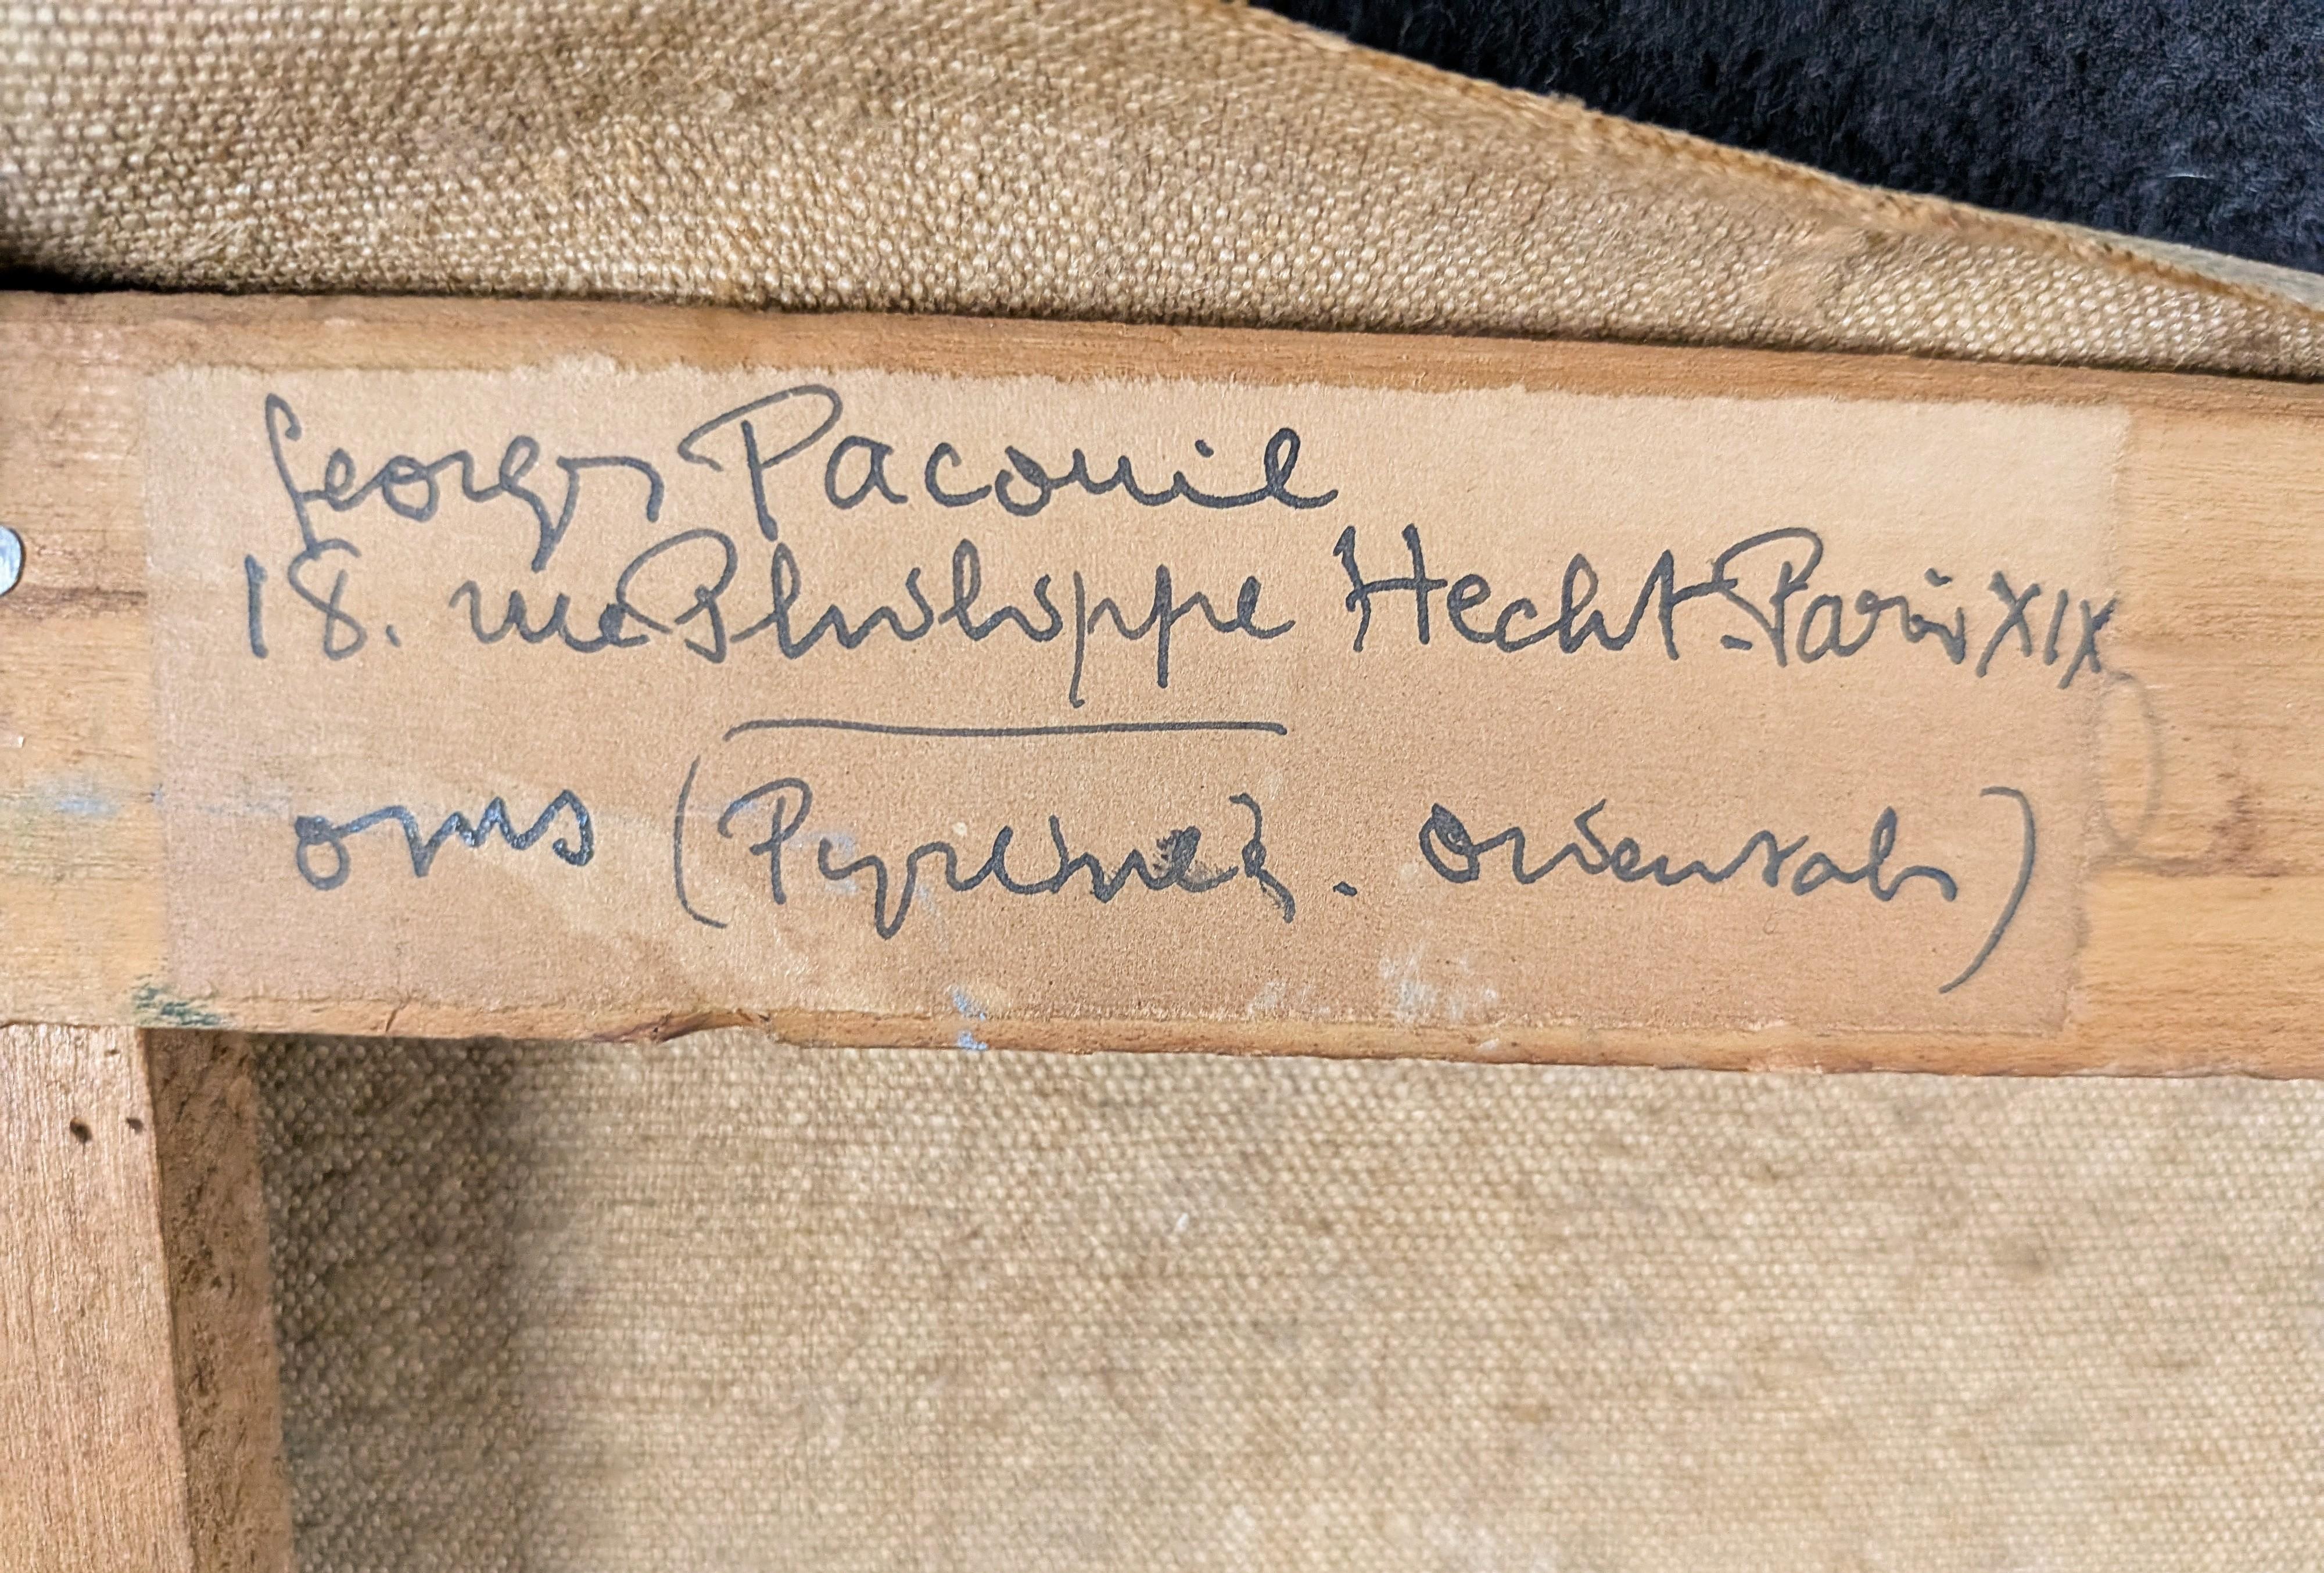 Georges Pacouil
18. rue Philippe Hecht-Paris XIX
oms (Pyrénées. orientales)